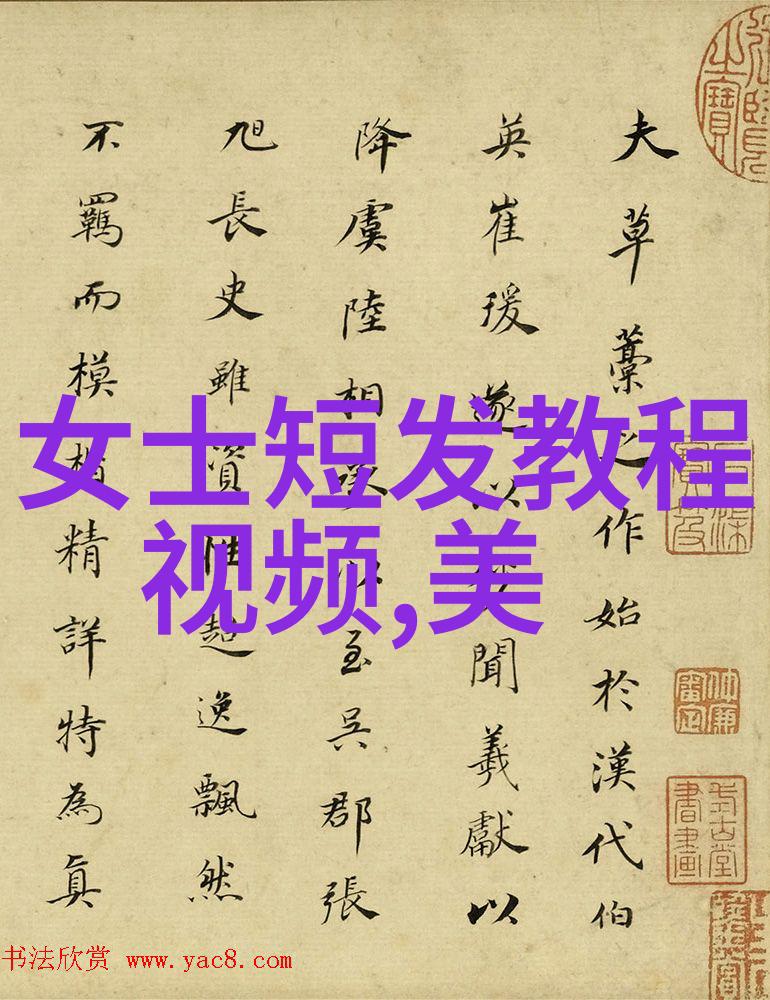 夫草藁之作始於漢代伯
英崔瑗遂以妙聞羲獻以
降虞陸相承以至吳郡張
旭長史雖資性超逸飄然
不羈而模楷精詳特為真
女士短发教程
视频,美
书法欣赏 www.yac8.com